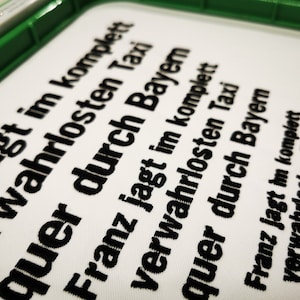 jagt im komplett
verwahrlosten Taxi
quer durch Bayern
Franz jagt im komplett
verwahrlosten Taxi
quer durch Bayern
Franz jagt im komplett
verwahrlosten